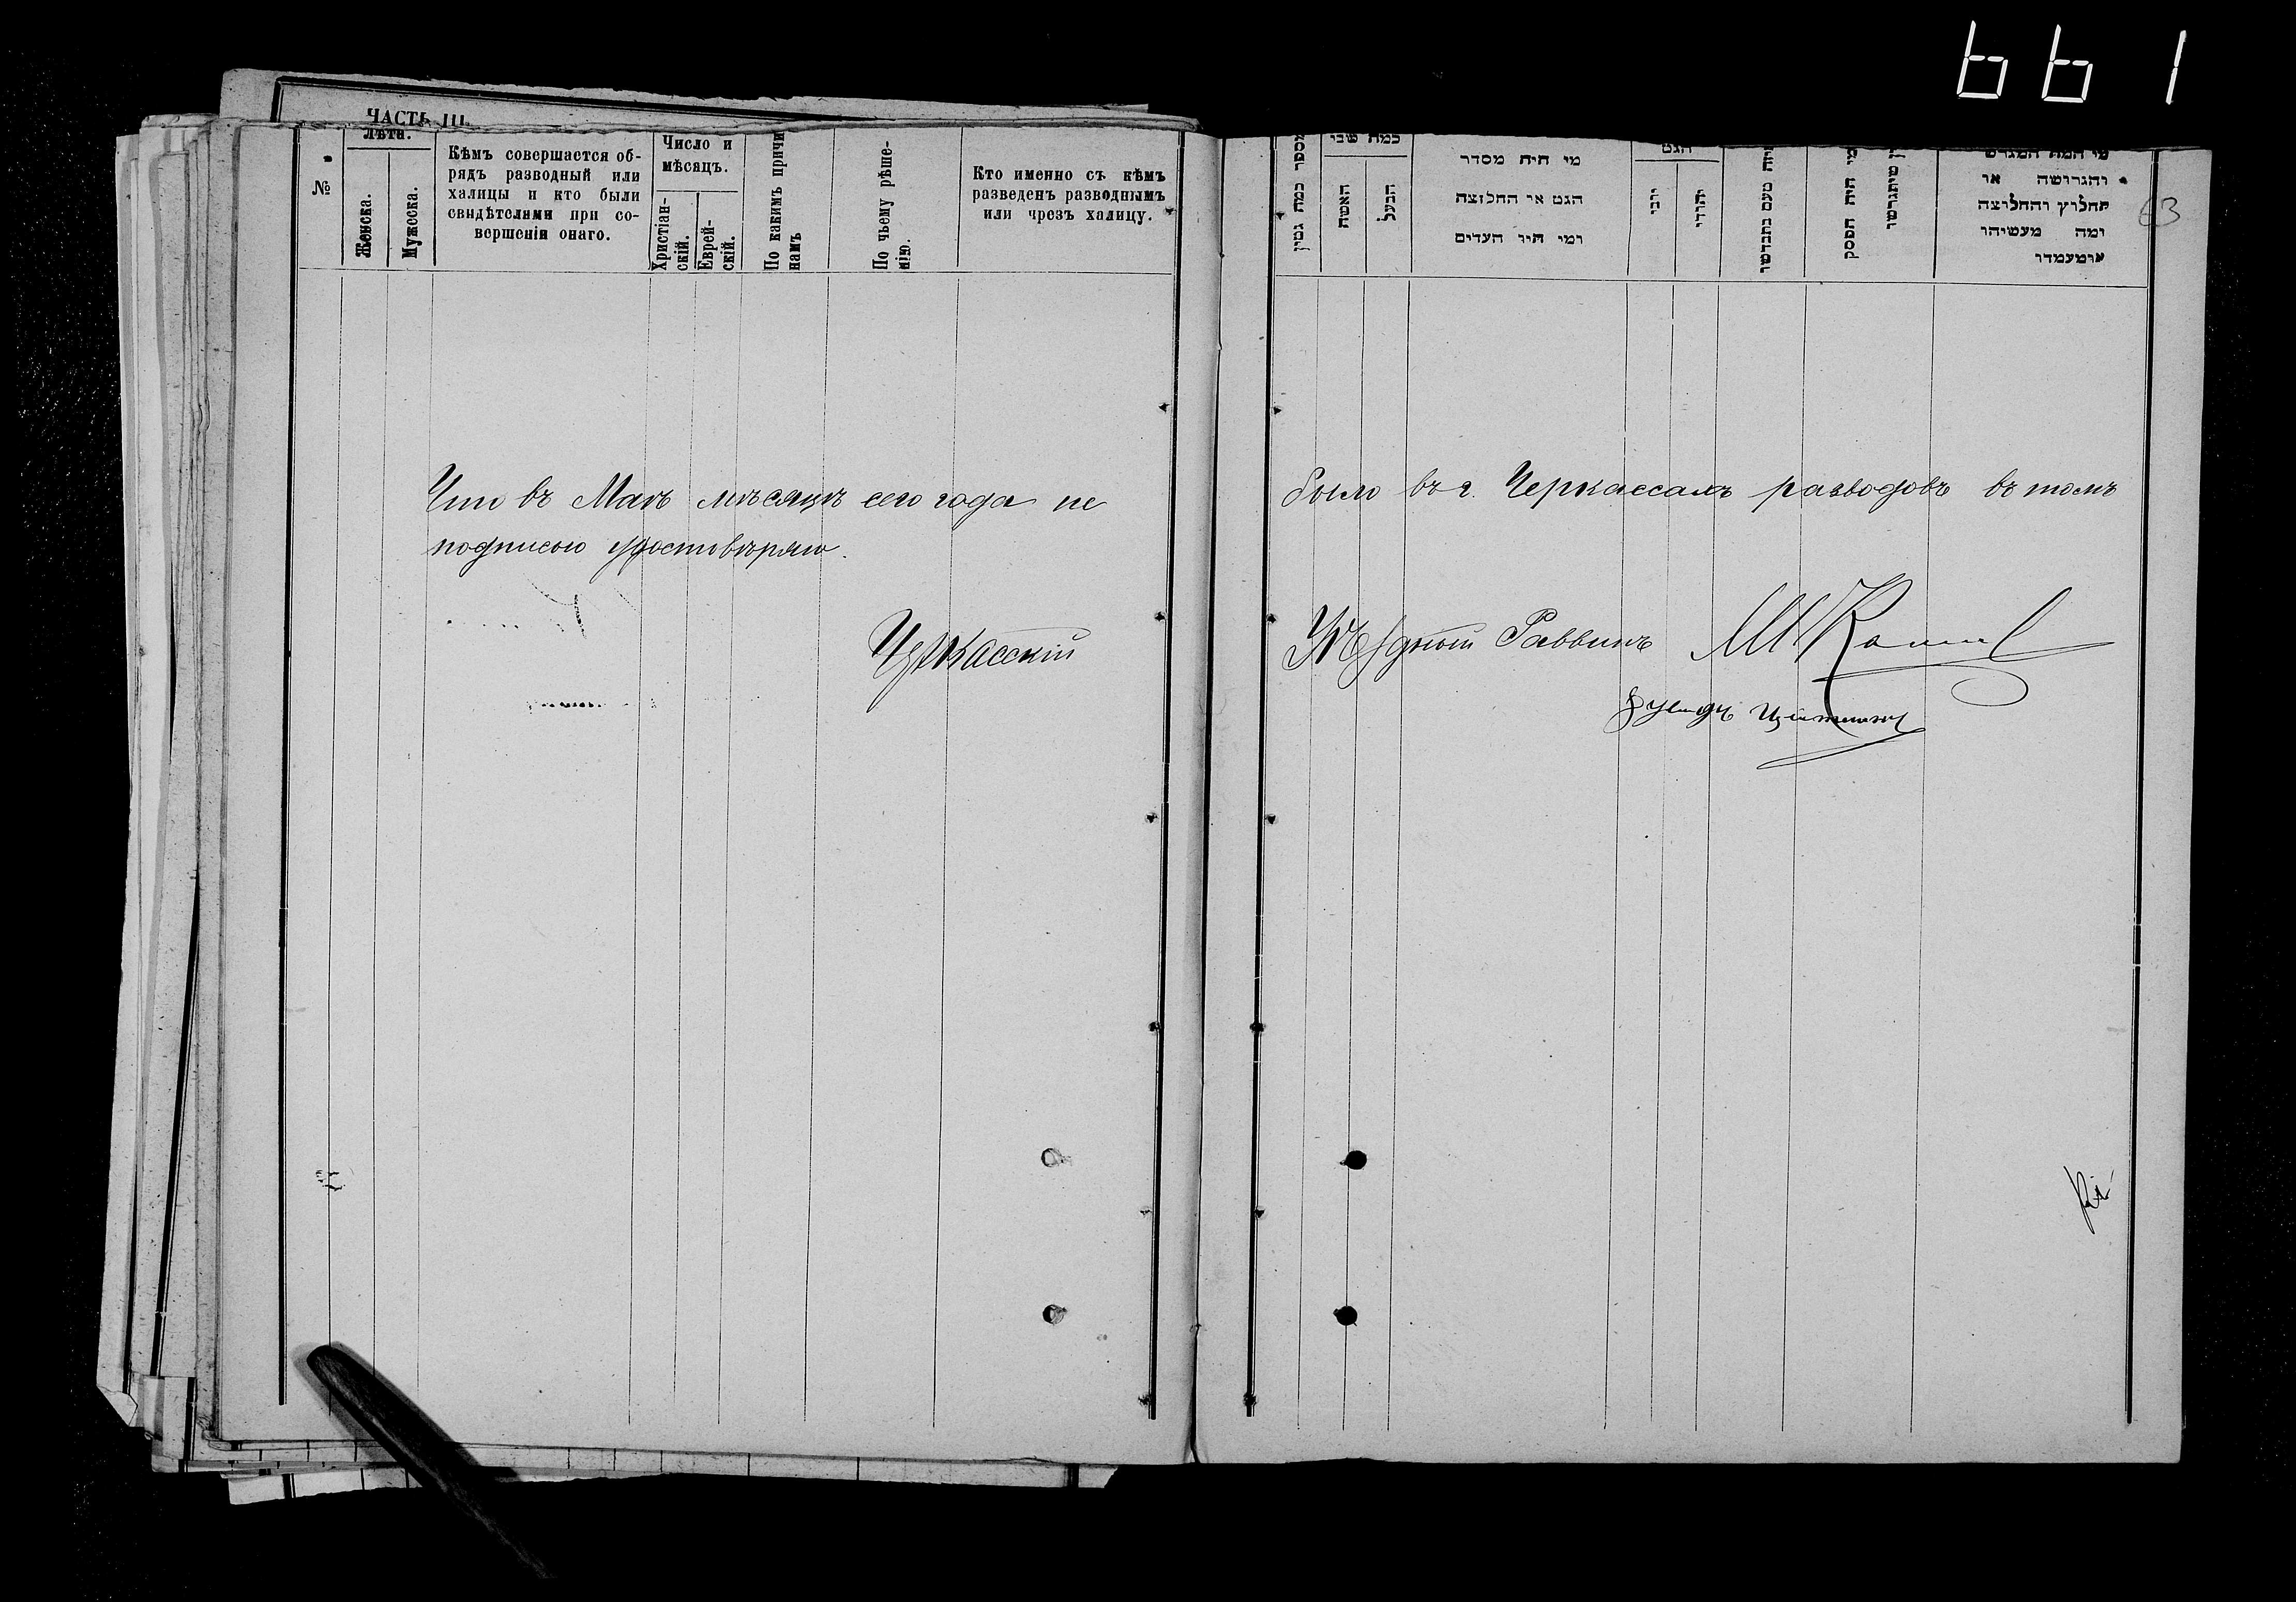 661
ЧАСТЬ III.
Лѣта.
№
Женска.
Мужеска.
Кѣмъ совершается об-
рядъ разводный или
халицы и кто были
свидѣтелями при со-
вершеніи онаго.
Число и
мѣсяцъ.
Христіан-
скій.
Еврей-
скій.
По какимъ причи
намъ
По чьему рѣше-
нію.
Кто именно съ кѣмъ
разведенъ разводнымъ
или чрезъ халицу.
מספר כמה גטין
כמה שני
האשה
הבעל
מי היה מסדר
הגט או החלוצה
ומי היו העדים
הגט
יהודי
מי היה הפסק
מי המה המגרש
והגרושה או
החלוץ והחלוצה
ומה מעשיהו
ומעמדו
63
Что въ Маѣ мѣсяцѣ сего года не было въ г. Черкассахъ разводовъ въ томъ
подписью удостовѣряю.
Черкасскій Уѣздный Раввинъ